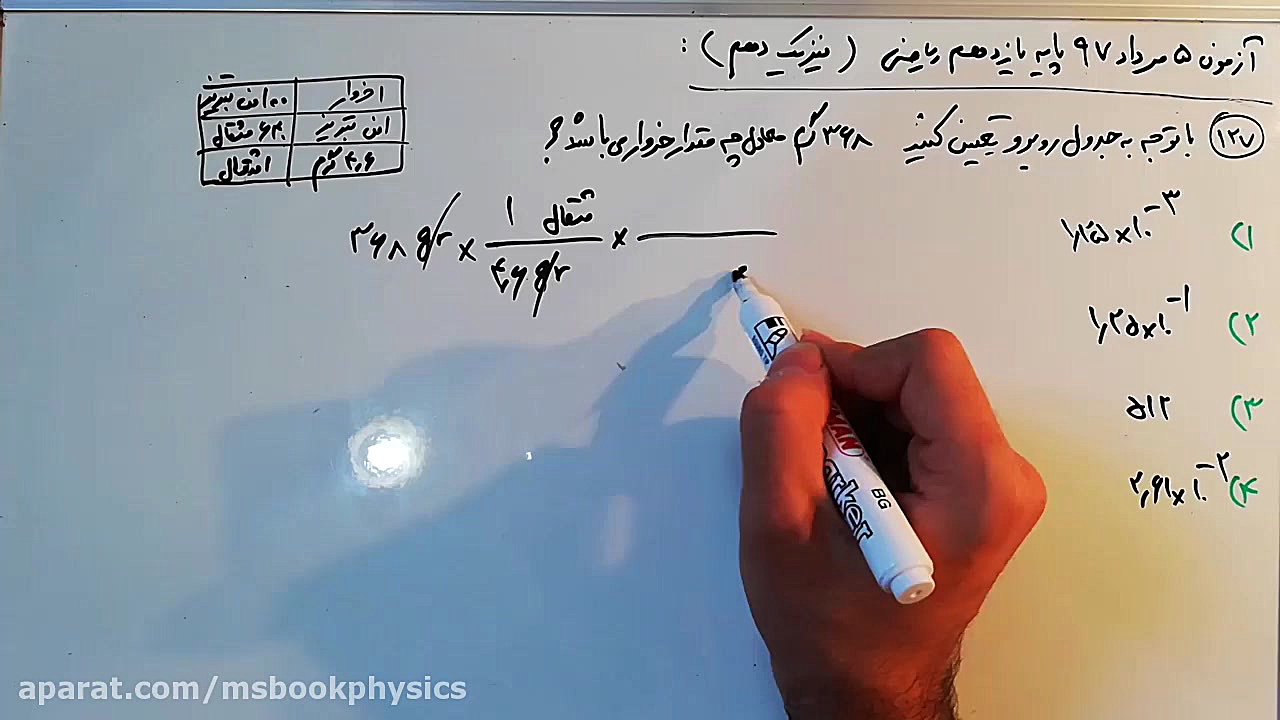 آزمون ۵ مرداد ۹۷ پایه یازدهم ریاضی (فیزیک دهم):
۱۲۷ با توجه به جدول روبرو تعیین کنید ۳۶۸ گرم معادل چه مقدار خرواری باشد؟
۱ خروار ۱۰۰ من تبریز
۱ من تبریز ۶۴۰ مثقال
۴,۶ گرم ۱ مثقال
۳۶۸ gr × ۱ مثقال / ۴,۶ gr ×
۱) ۱,۲۵ × ۱۰^-۳
۲) ۱,۲۵ × ۱۰^-۱
۳) ۵۱۲
۴) ۲,۶۱ × ۱۰^-۲
MARKER
BG
aparat.com/msbookphysics